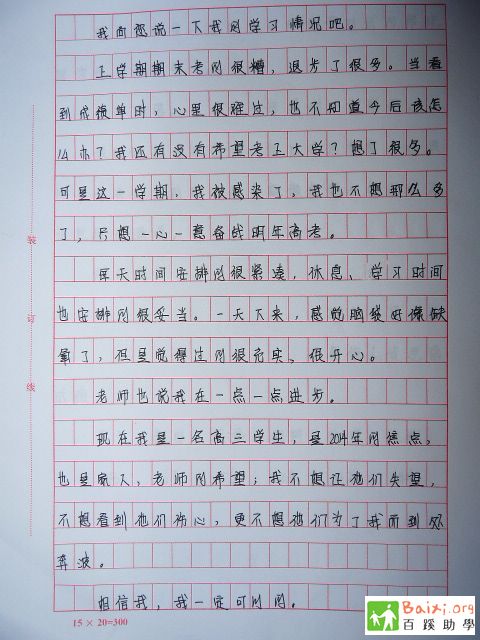 我向您说一下我的学习情况吧。
上学期期末考的很糟，退步了很多。当看
到成绩单时，心里很难过，也不知道今后该怎
么办？我还有没有希望考上大学？想了很多。
可是这一学期，我被感染了，我也不想那么多
了，只想一心一意备战明年高考。
每天时间安排的很紧凑，休息、学习时间
也安排的很妥当。一天下来，感觉脑袋好像缺
氧了，但是觉得过的很充实、很开心。
老师也说我在一点一点进步。
现在我是一名高三学生，是2014年的焦点，
也是家人，老师的希望；我不想让他们失望，
不想看到他们伤心，更不想他们为了我而到处
奔波。
相信我，我一定可以的。
装
订
线
15×20=300
Baixi.org
百蹊助學